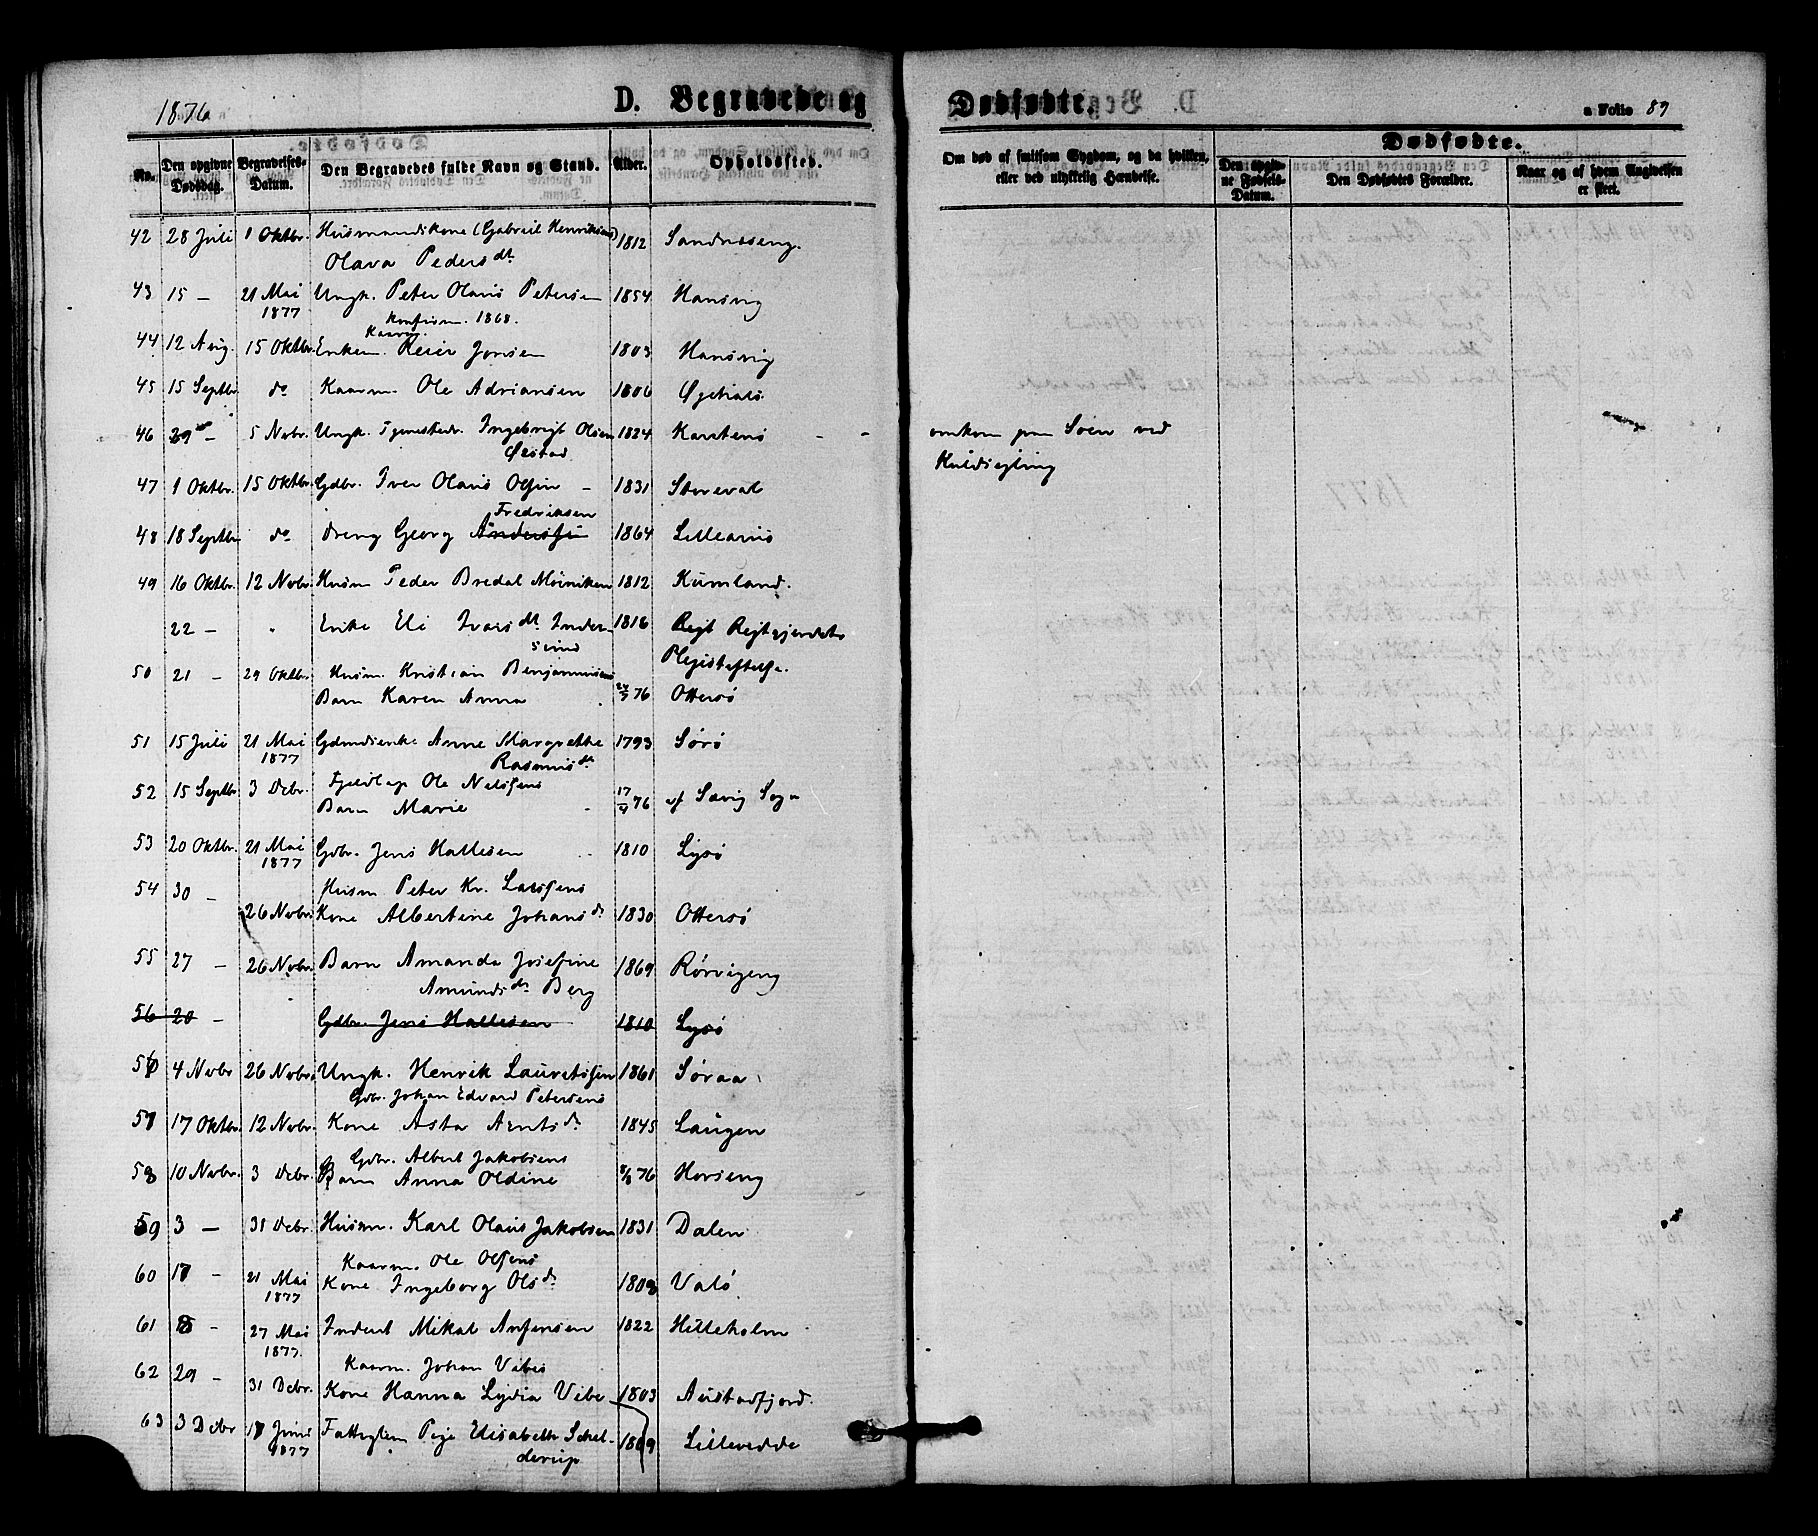 1876
D. Begravede og Dødfødte.
a Folio 89
No.
Den opgivne Dødsdag.
Begravelses-Datum.
Den Begravedes fulde Navn og Stand.
Alder.
Opholdssted.
Om død af smitsom Sygdom, og da hvilken, eller ved ulykkelig Hændelse.
Dødfødte.
Den opgivne Fødsels-Datum.
Den Dødfødtes Forældre.
Naar og af hvem Angivelsen er skeet.
42 28 Juli 1 Oktbr. Husmandskone (Gabriel Henriksens) 1812 Sandnæseng.
Olava Pedersdtr
43 15 — 21 Mai 1877 Ungk. Peter Olaus Petersen 1854 Hansvig
Konfirm. 1868.
Kaarm.
44 12 Aug. 15 Oktbr. Enkem. Reier Jonsen 1803 Hansvig
45 15 Septbr do Kaarm. Ole Adriansen 1806
46 29 — 5 Novbr. Ungk. Tjenestedr. Ingebrigt Olsen 1824 Karstenø - - omkom paa Søen ved
Øxstad Kuldseiling
47 1 Oktbr. 15 Oktbr. Gdbr. Iver Olaus Olsen — 1831 Storeval
Fredriksen
48 18 Septbr do Dreng Georg Andersen 1864 Lillearnø
49 16 Oktbr. 12 Novbr. Husm Peder Bredal Meiniken 1812 Kumland.
22 — " Enke Eli Ivarsdtr Inder- 1816 Regt Regtgjerdets
sund Pleiestiftelse.
50 21 — 29 Oktbr. Husm. Kristian Benjaminsens
Barn Karen Anna 24/7 76 Ottersø
51 15 Juli 21 Mai 1877 Gdmdsenke Anne Margrethe 1793 Sørø
Rasmusdr
52 15 Septbr 3 Debr. Ole Nilssens
Barn Marie 17/4 76 af Sørvig Sogn
53 20 Oktbr. 21 Mai 1877 Gdbr. Jens Hallesen 1810 Lysø
54 30 — Husm Peter Kr. Larssens
26 Novbr. Kone Albertine Johansdr 1830 Ottersø
55 27 — 26 Novbr. Barn Amanda Josefine 1869 Rørvigeng
Amundsdr Berg
56 20 — Gdbr. Jens Hallesen 1810 Lysø
56 4 Novbr 26 Novbr. Ungk. Henrik Lauretssen 1861 Søraa
Gdbr. Johan Edvard Petersens
57 17 Oktbr. 12 Novbr. Kone Asta Arntsdr 1845 Laugen
Gdbr. Albert Jakobsens
58 10 Novbr. 3 Debr. Barn Anna Oldine 8/8 76 Horseng
59 3 — 31 Debr. Husm. Karl Olaus Jakobsen 1831 Dalen
Kaarm. Ole Olsens
60 17 — 21 Mai 1877 Kone Ingeborg Olsdr 1808 Valø
61 18 — 27 Mai 1877. Inderst Mikal Anfinsen 1822 Hilleholm
Kaarm. Johan Vibes
62 29 — 31 Debr. Kone Hanna Lydia Vibe 1803 Austadfjord.
63 3 Debr 17 Juni 1877 Fattiglem Pige Elisabeth Schel- 1809 Lillevedde
derup